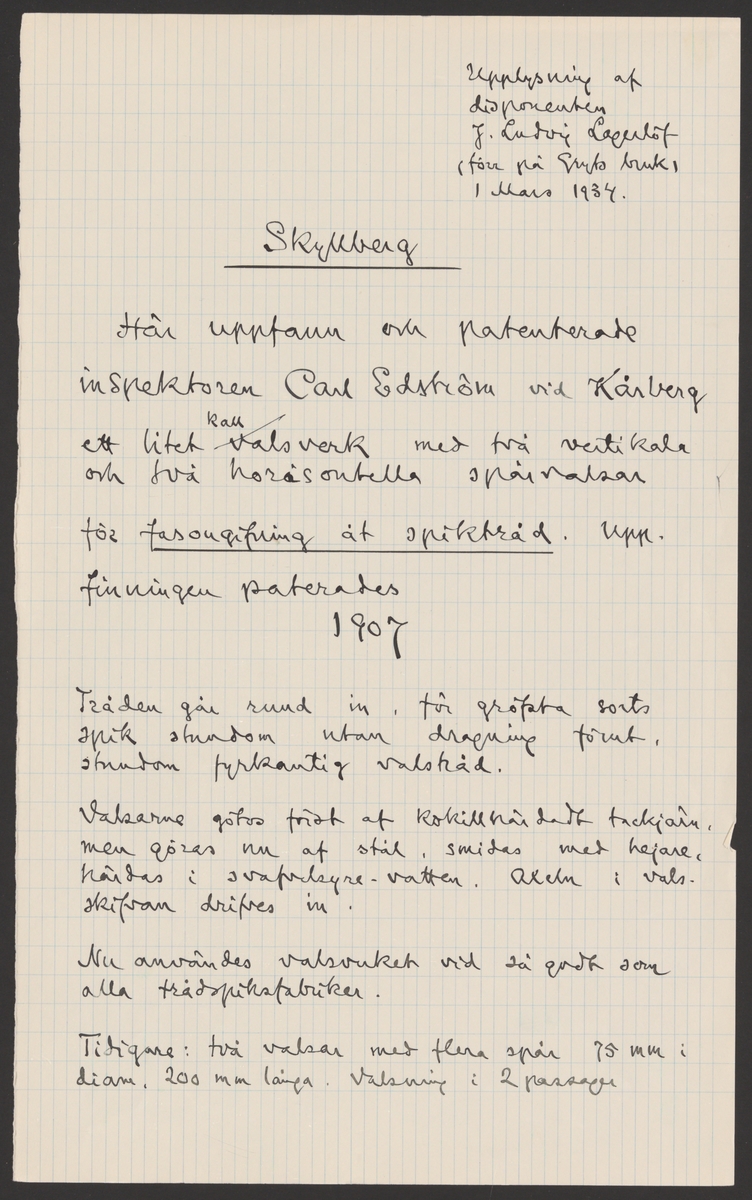 Upplysning af
disponenten
J. Ludvig Lagerlöf
(förr på Gryts bruk)
1 Mars 1934.
Skyllberg
Här uppfann och patenterade
inspektoren Carl Edström vid Kårberg
ett litet kallvalsverk med två vertikala
och två horisontella spårvalsar
för fasongifning åt spiktråd. Upp-
finningen paterades
1907
Tråden går rund in, för gröfsta sorts
spik stundom utan dragning förut,
stundom fyrkantig valstråd.
Valsarne götos först af kokillhärdadt tackjärn,
men göras nu af stål, smidas med hejare,
härdas i svafvelsyre-vatten. Axeln i vals-
skifvan drifves in.
Nu användes valsverket vid så godt som
alla trådspiksfabriker.
Tidigare: två valsar med flera spår 75 mm i
diam, 200 mm långa. Valsning i 2 passager